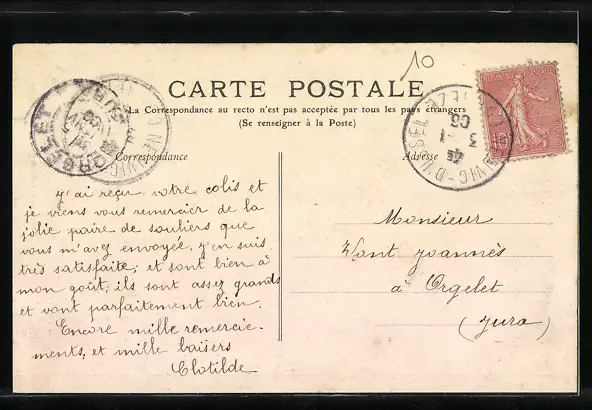 10
CARTE POSTALE
La Correspondance au recto n'est pas acceptée par tous les pays étrangers
(Se renseigner à la Poste)
Correspondance
Adresse
ORGELET
10
y'ai reçu votre colis et
je viens vous remercier de la
jolie paire de souliers que
vous m'avez envoyée, y'en suis
très satisfaite; et sont bien à
mon goût; ils sont assez grands
et vont parfaitement bien.
Encore mille remercie-
ments, et mille baisers
Clotilde
Monsieur
Vont yoannès
à Orgelet
(yura)